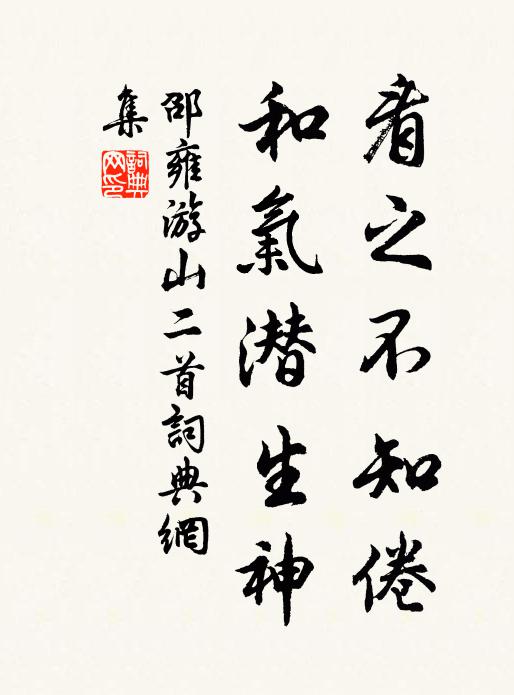 看之不知倦
和氣潜生神
邵雍游山二首詞典網
集
詞典
网